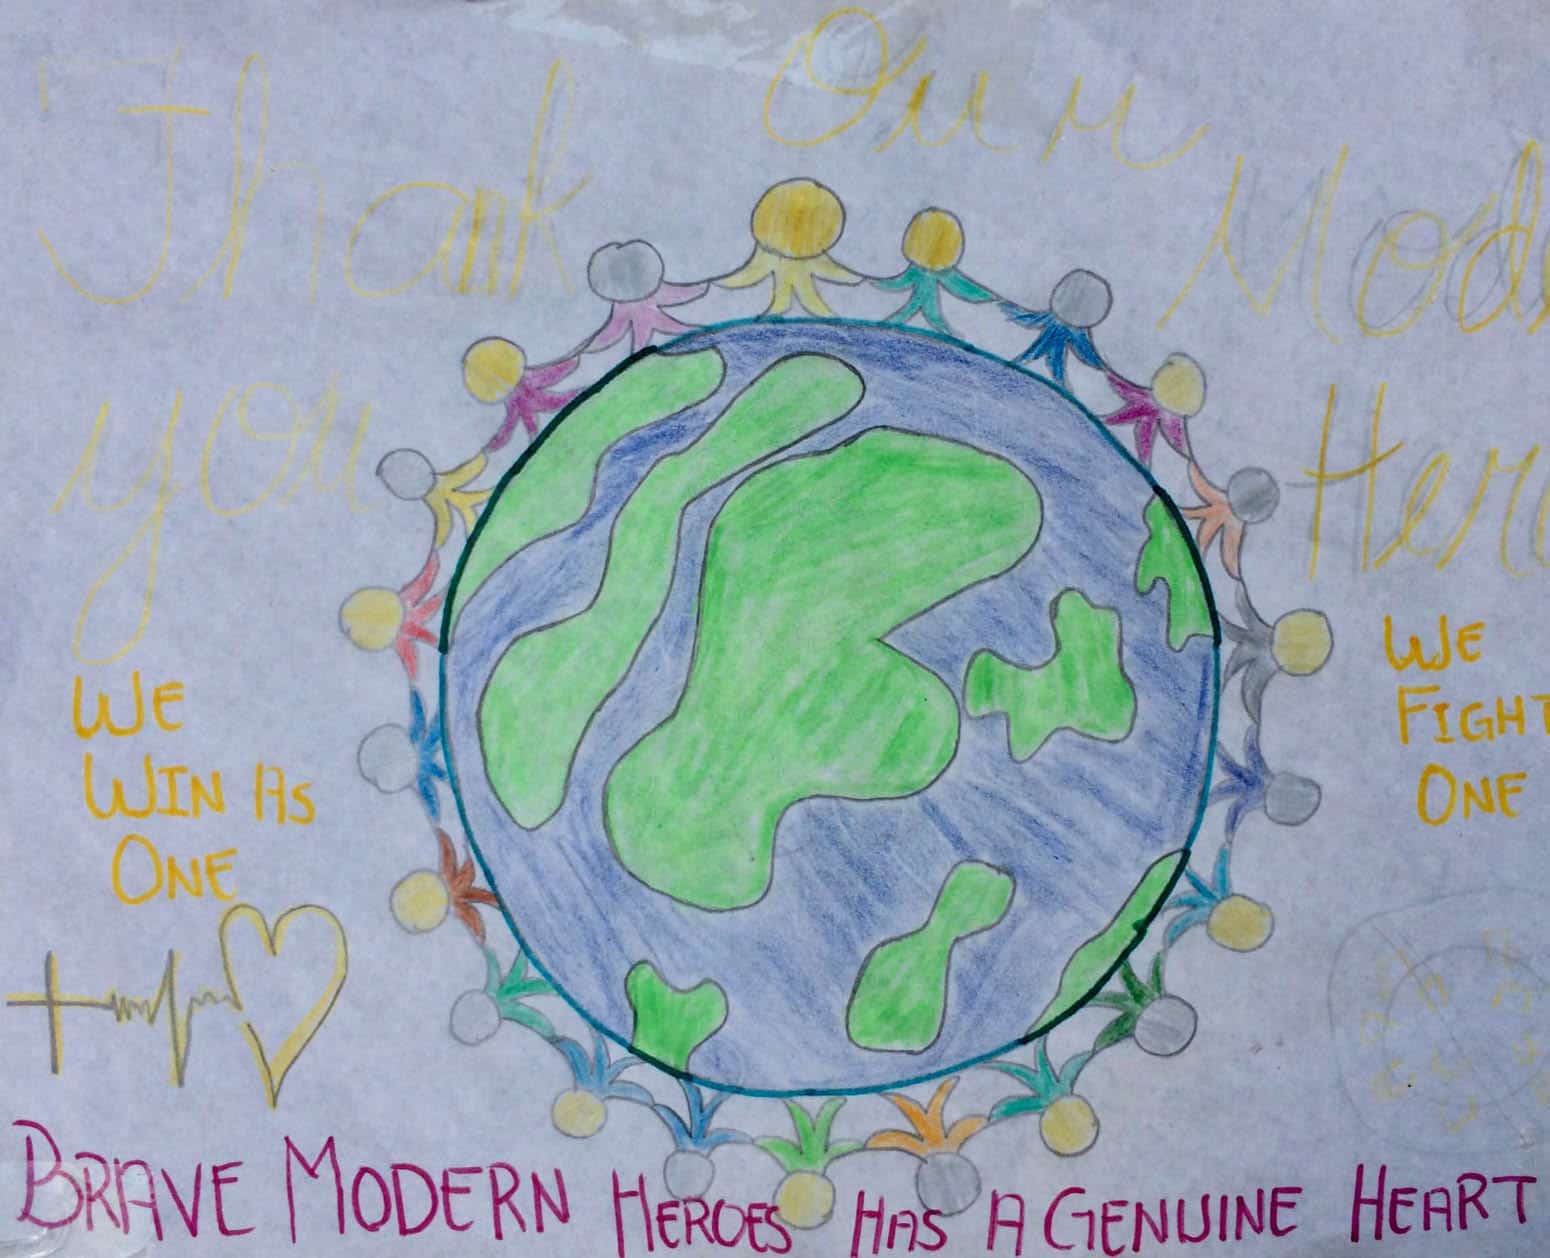 Thank
you
Our
Mod
Her
WE
WIN AS
ONE
WE
FIGHT
ONE
BRAVE MODERN HEROES HAS A GENUINE HEART